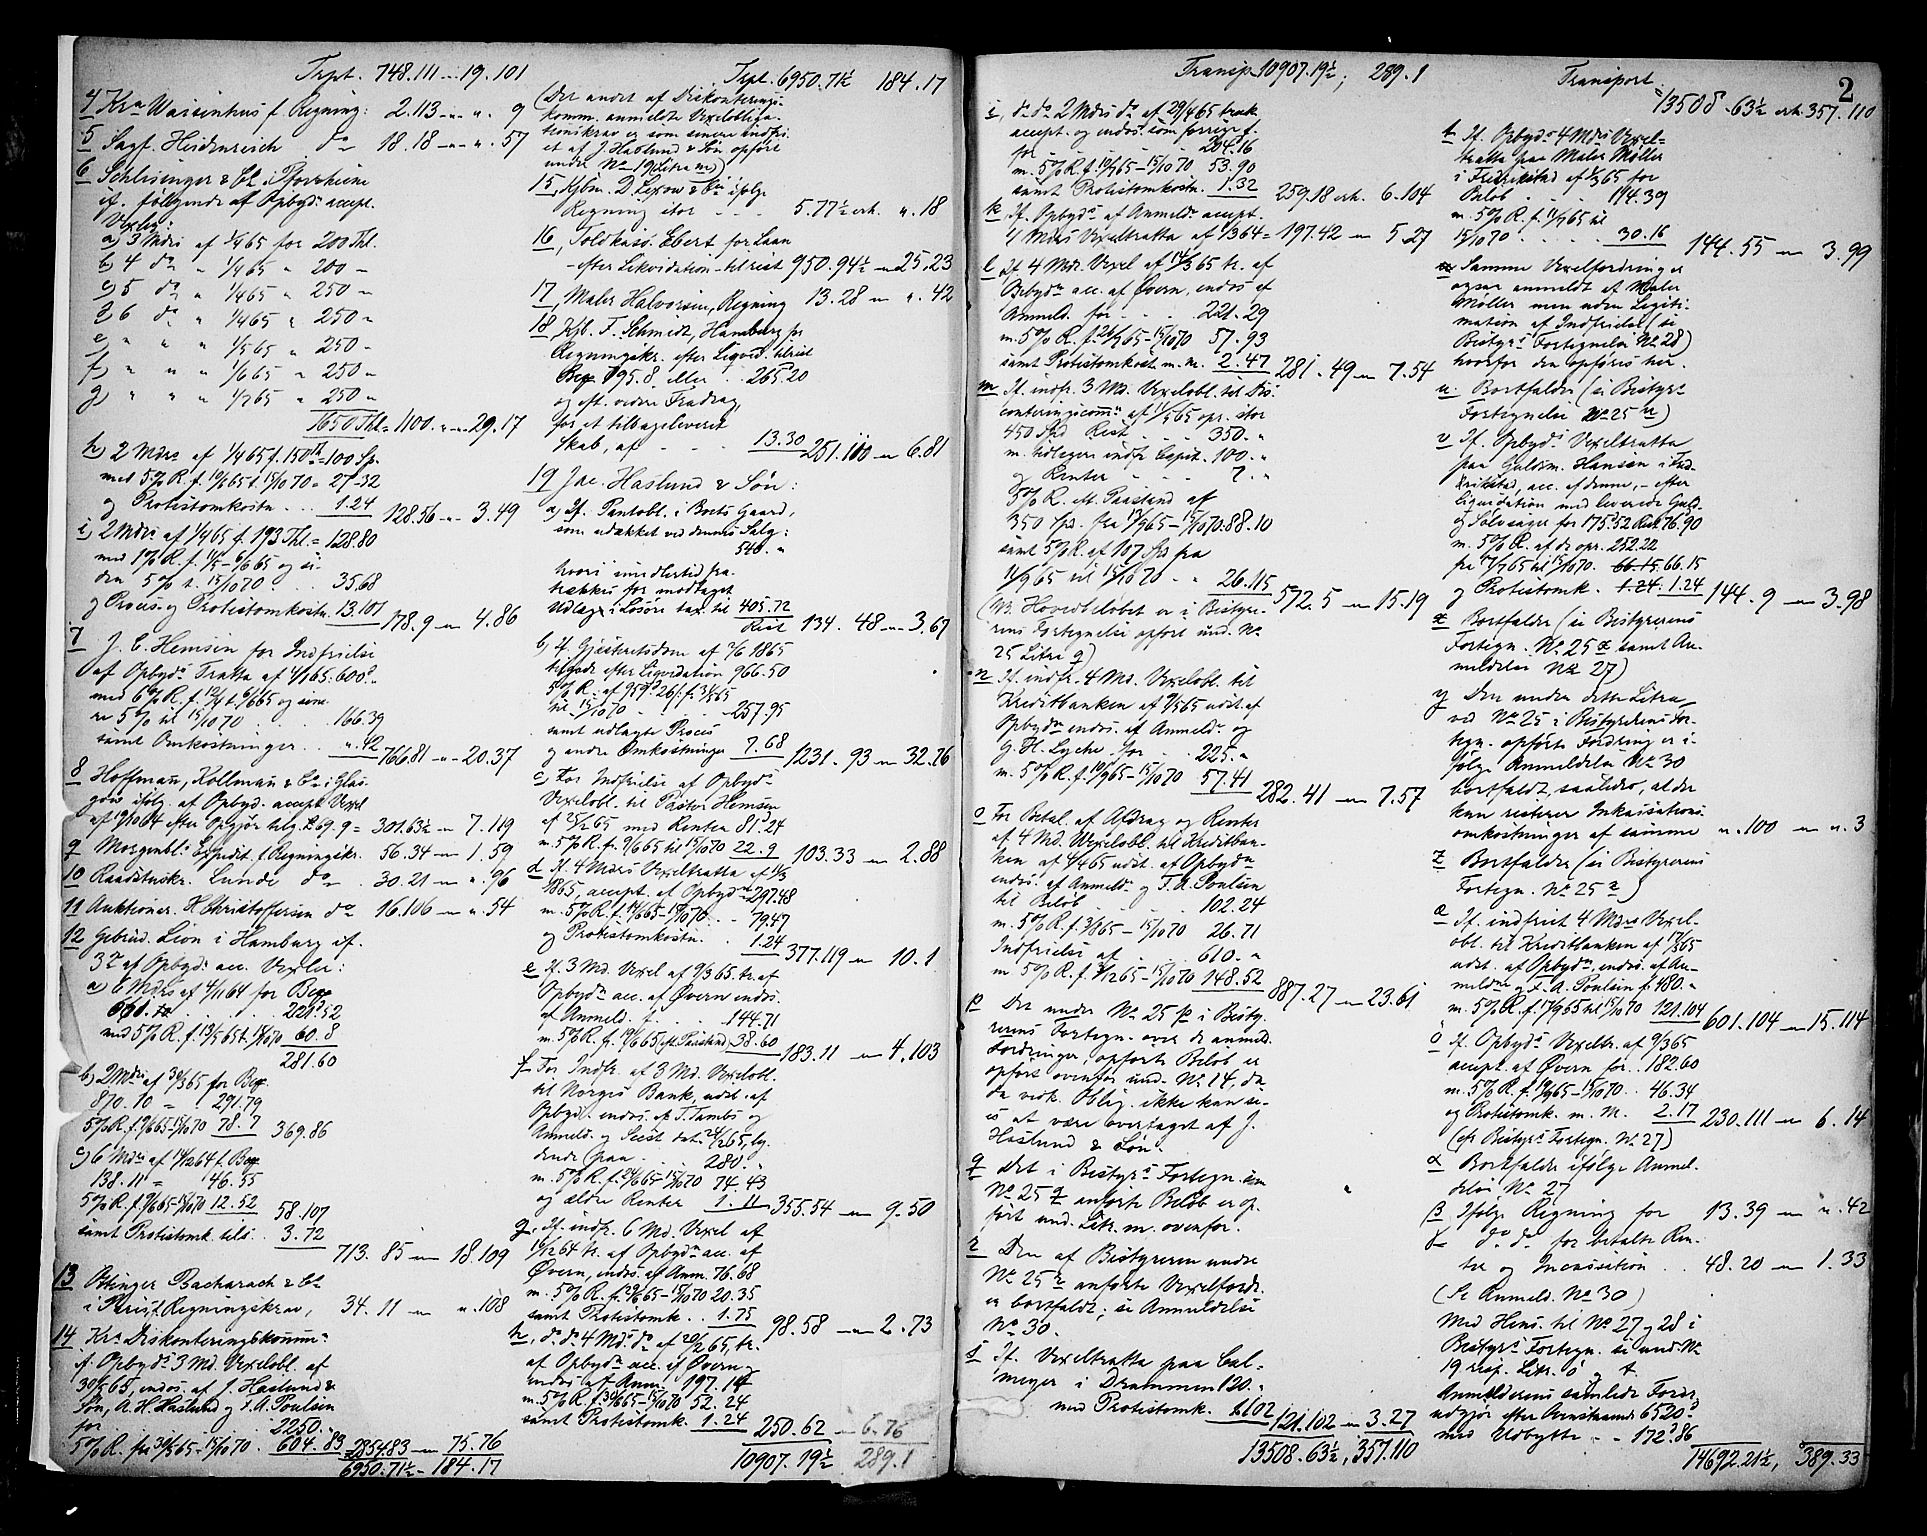 Trpt. 748.111 - 19.101
4 Kra Waisenhus f. Regning: 2.113 - " 9
5 Sagf. Heidenreich do 18.18 - " 57
6 Schlesinger & Co i Pforzheim
if. følgende af Opbyds accept.
Vexler:
a) 3 Mdrs af 1/465 for 200 Thl.
b) 4 do " 1/465 " 200 "
c) 5 do " 1/465 " 250 "
d) 6 do " 1/465 " 250 "
e) " " " 1/565 " 250 "
f) " " " 1/665 " 250 "
g) " " " 1/765 " 250 "
1650 Thl = 1100. " - 29.17
h) 2 Mdrs af 1/465 f. 150 Th = 100 Sp.
med 5% R. f. 19/665 t. 15/1070 = 27.32
og Protestomkostn. ... 1.24 128.56 - 3.49
i) 2 Mdrs af 1/465 f. 193 Thl. = 128.80
med 1% R. f. 11/5 - 9/665 og si-
den 5% t. 15/1070 . . 35.68
og Proces- og Protestomkostn. 13.101 178.9 - 4.86
7 J. C. Hemsen for Indfrielse
af Opbyds Tratta af 4/165. 600 "
med 6% R. f. 12/4 t. 6/665 og sene-
re 5% til 15/1070 . . . 166.39
samt Omkostninger . . ". 42 766.81 - 20.37
8 Hoffmann, Kollman & Co i Glas-
gow ifølg. af Opbyd. accept. Vexel
af 19/1064 efter Opgjør tilg. £ 69.9 = 301.63½ - 7.119
9 Morgenbl. Expedit. f. Regningskr. 56.34 - 1.59
10 Raadstuskr. Lunde do . 30.21 - ". 96
11 Auktioner. H Christoffersen do 16.106 - ". 54
12 Gebrüd. Lion i Hamburg if.
3de af Opbyds acc. Vexler:
a) 6 Mdrs af 4/1164 for Bco
661.12 . . . . . 221.52
med 5% R. f. 13/565 t. 15/1070 60.8
281.60
b) 2 Mdrs af 30/365 for Bco
870.10 = 291.79
5% R. f. 9/665-15/1070 78.7 369.86
c) 6 Mdrs af 14/1264 f. Bco
138.11 = 46.55
5% R. f. 9/665-15/1070 12.52 58.107
samt Protestomk. tils. . 3.72
713.85 - 18.109
13 Ottinger Bacharach & Co
i Paris f. Regningskrav, 34.11 - ". 108
14 Kra Diskonteringskomm:
if. Opbyds 3 Md. Vexelobl. af
30/565, endos. af J. Haslund &
Søn, A. H. Haslund og F. A. Poulsen
for . . . . 2250. "
5% R. fra 30/565-15/1070 . 604.83 2854.83 - 75.76
6950.71½ - 184.17
Trpt. 6950.71½ 184.17
(Det andet af Diskonterings-
komm. anmeldte Vexelobliga-
tionskrav er som senere indfri-
et af J. Haslund & Søn opført
under No 19 Litra m)
15, Kjbm. D. Lexow & Co ifølge
Regning stor - - - 5.77½ - ". 18
16, Toldkass. Ebert for Laan
- efter Likvidation - til rest 950.94½ - 25.23
17, Maler Halvorsen, Regning 13.28 - ". 42
18, Kjb. F. Schmidt, Hamburg for
Regningskr. efter Liqvid. til rest
Bco 795.8. eller . . 265.20
og eft. videre Fradrag
for et tilbageleveret
Skab, af - - - 13.30 251.110 - 6.81
19 Jac. Haslund & Søn:
a, If. Pantobl. i Boets Gaard,
som udækket ved dennes Salg:
540. "
hvori imidlertid fra-
trækkes for modtaget
Udlæg i Løsøre tax. til 405.72
Rest 134.48 - 3.67
b, if. Gjesteretsdom af 7/6 1865
tilgode efter Liqvidation 966.50
5% R. af 959.26 f. 31/565
til 15/1070 . . . 257.95
samt udlagte Proces
og andre Omkostninger 7.68 1231.93 - 32.76
c, For Indfrielse af Opbyds
Vexelobl. til Pastor Hemsen
af 25/265 med Renter 81.24
m. 5% R. fr. 9/665 til 15/1070 22.9 103.33 - 2.88
d, If. 4 Mdrs Vexeltratta af 1/3
1865, accept. af Opbyd. 297.48
m. 5% R. f. 14/665-15/1070 . . 79.47
og Protestomkostn. . 1.24 377.119 - 10.1
e, If. 3 Md. Vexel af 9/365 tr. af
Opbydn acc. af Øvern endos.
af Anmeld. f. . . . 144.71
m. 5% R. fr. 19/665 (eft. Paastand) 38.60 183.11 - 4.103
f, For Indfr. af 3 Md. Vexelobl.
til Norges Bank, udst. af
Opbyd. endos. af T. Tambs og
Anmeld. og Seest dat. 24/265, ly-
dende paa - . 280. "
m. 5% R. f. 24/665-15/1070 74.43
og ældre Renter 1.11 355.54 - 9.50
g, If. indfr. 6 Md. Vexel af
1/1264 tr. af Opbydn acc. af
Øvern, endos. af Anm. 76.68
m. 5% R. f. 29/665-15/1070 20.35
samt Protestomk. . . 1.75 98.58 - 2.73
h, do do 4 Mds do af 20/265, tr.
af Opbydn acc. af Øvern og
endos af Anm. 197.14
m. 5% R. f. 30/665-15/1070 52.24
samt Protestomk. 1.24 250.62 - 6.76
10907.19½ 289.1
Transp. 10907.19½; 289.1
i, do do 2 Mdrs do af 29/465 trak.
accept. og endos. som forrige f.
for . . . . 204.16
m. 5% R. f. 19/765-15/1070 53.90
samt Protestomkostn. 1.32 259.18 - 6.104
k, If. Opbyds af Anmeldn accept.
4 Mdrs Vexeltratta af 1364 = 197.42 - 5.27
l If 4 Md. Vexel af 14/365 tr. af
Opbydn acc. af Øvern, endos af
Anmeld. for - . . . 221.29
m. 5% R. f. 26/765-15/1070 57.93
samt Protestomkost. m. m. 2.47 281.49 - 7.54
m If. indfr. 3 Md. Vexelobl. til Dis-
conteringscomm: af 11/565 opr. stor
450 Spd Rest - . . 350. "
m. tidligere indfr Capit. 100. "
og Renter - - - - 7. "
5% R. eft. Paastand af
350 Sps. fra 13/965-15/1070. 88.10
samt 5% R. af 107 Sps fra
11/965 til 15/1070 - " 26.115 572.5 - 15.19
(NB. Hovedbeløbet er i Bestyre-
rens Fortegnelse opført und. No
25 Litra q)
n If. indfr. 4 Md. Vexelobl. til
Kreditbanken af 9/565 udst. af
Opbydn endos. af Anmeldn og
G. H. Lyche for . . 225. "
m. 5% R. f. 10/965-15/1070 57.41 282.41 - 7.57
o For Betal. af Afdrag og Renter
af 4 Md. Vexelobl. til Kreditban-
ken af 4/465 udst. af Opbydn
endos. af Anmeldn og F. A. Poulsen
til Beløb . . . . . 102.24
m. 5% R. f. 3/865-15/1070 26.71
Indfrielse af . . . 610. "
m 5% R. f. 1/1265-15/1070 148.52 887.27 - 23.61
p Det under No 25 p i Besty-
rerens Fortegn. over de anmeld.
Fordringer opførte Beløb er
opført ovenfor und. No 14, da
da vedk. Oblig. ikke kan se-
es at være overtaget af J.
Haslund & Søn.
q Det i Bestyrs Fortegn. un
No 25 q anførte Beløb er op-
ført und. Litr. m. ovenfor. -
r Den af Bestyreren under
No 25 r anførte Vexelfordr.
er bortfaldt; se Anmeldelse
No 30.
s If. Vexeltratta paa Cal-
meyer i Drammen 120. "
med Protestomk. 1.102 121.102 - 3.27
13508.63½, 357.110
Transport 2
13508.63½ - 357.110
t If. Opbyds 4 Mdrs Vexel-
tratta paa Maler Møller
i Fredrikstad af 1/365 for
Beløb - . . 114.39
m. 5% R. f. 11/765 til
15/1070 . . . . 30.16 144.55 - 3.99
Samme Vexelfordring er
ogsaa anmeldt af Maler
Møller men uden Legiti-
mation af Indfrielse (se
Bestyrs Fortegnelse No 28)
hvorfor den opføres her.
u. Bortfalder (se Bestyrs
Fortegnelse No 25 u)
v If. Opbyds Vexeltratta
paa Guldsm. Hansen i Fred-
rikstad, acc. af denne, - efter
Liquidation med leverede Guld-
og Solvsager for 175.52 Rest 76.90
m. 5% R. af de opr. 252.22
fra 17/765 til 15/1070. 66.15 66.15
og Protestomk. 1.24. 1.24 144.9 - 3.98
x Bortfalder (se Bestyrerens
Fortegn. No 25 x samt An-
meldelse No 27)
y Den under dette Litra
ved No 25 i Bestyrerens For-
tegn. opførte Fordring er i-
følge Anmeldelse No 30
bortfaldt, saaledes, at der
kun resterer Inkassations-
omkostninger af samme ". 100 - ". 3
z Bortfalder (se Bestyrerens
Fortegn. No 25 z)
æ If. indfriet 4 Mdrs Vexel-
obl. til Kreditbanken af 17/365
udst. af Opbydn, endos. af An-
meldn og F. A. Poulsen f. 480. "
m. 5% R. f. 17/965 til 15/1070 121.104 601.104 - 15.114
ö If. Opbyds Vexeltr. af 9/365
accpt. af Øvern for . . 182.60
m. 5% R. f. 19/965-15/1070 . . 46.34
og Protestomk. m. M. . 2.17 230.111 - 6.14
(cfr Bestyrs Fortegn. No 27)
α Bortfalder ifølge Anmel-
delse No 27
β Ifølge Regning for 13.39 - ". 42
γ do do for betalte Ren-
ter og Incassation . . 48.20 - 1.33
(Se Anmeld. No 30)
Med Hens. til No 27 og 28 i
Bestyrs Fortegn. se und. No
19 resp. Litr. ö og t
Anmelderens samlede Fordr.
udgjør efter Ovenstaaende 6520
med Udbytte - - 172.86
14692.21½, 389.33